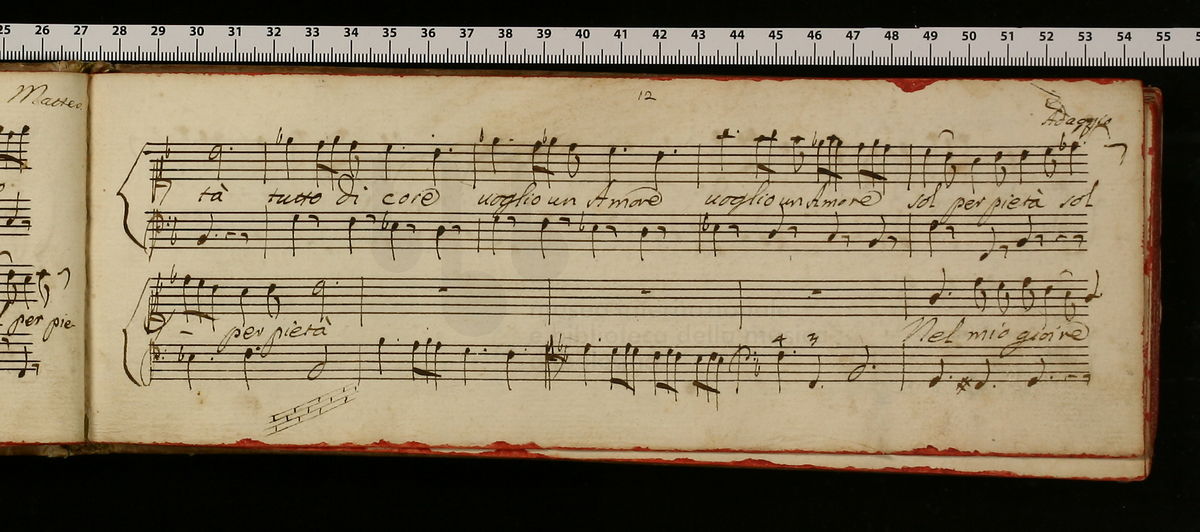 25 26 27 28 29 30 31 32 33 34 35 36 37 38 39 40 41 42 43 44 45 46 47 48 49 50 51 52 53 54 55
Matteo
12
Adaggio
tà tutto di core uoglio un Amore uoglio un Amore sol per pietà sol
per pie-
per pietà Nel mio gioire
4 3